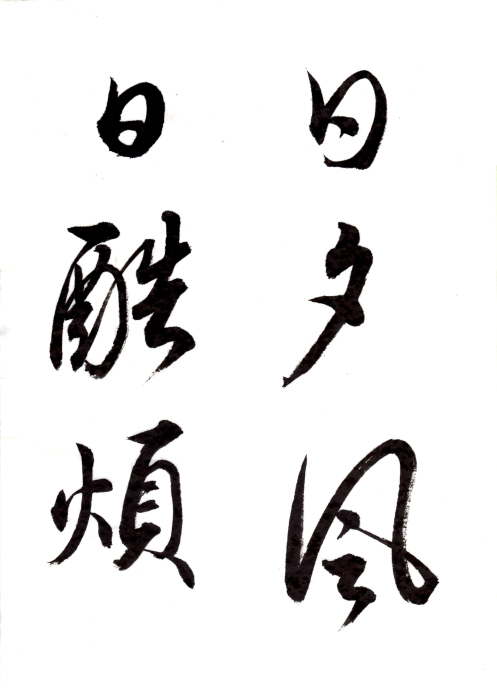 日夕風
日酷煩